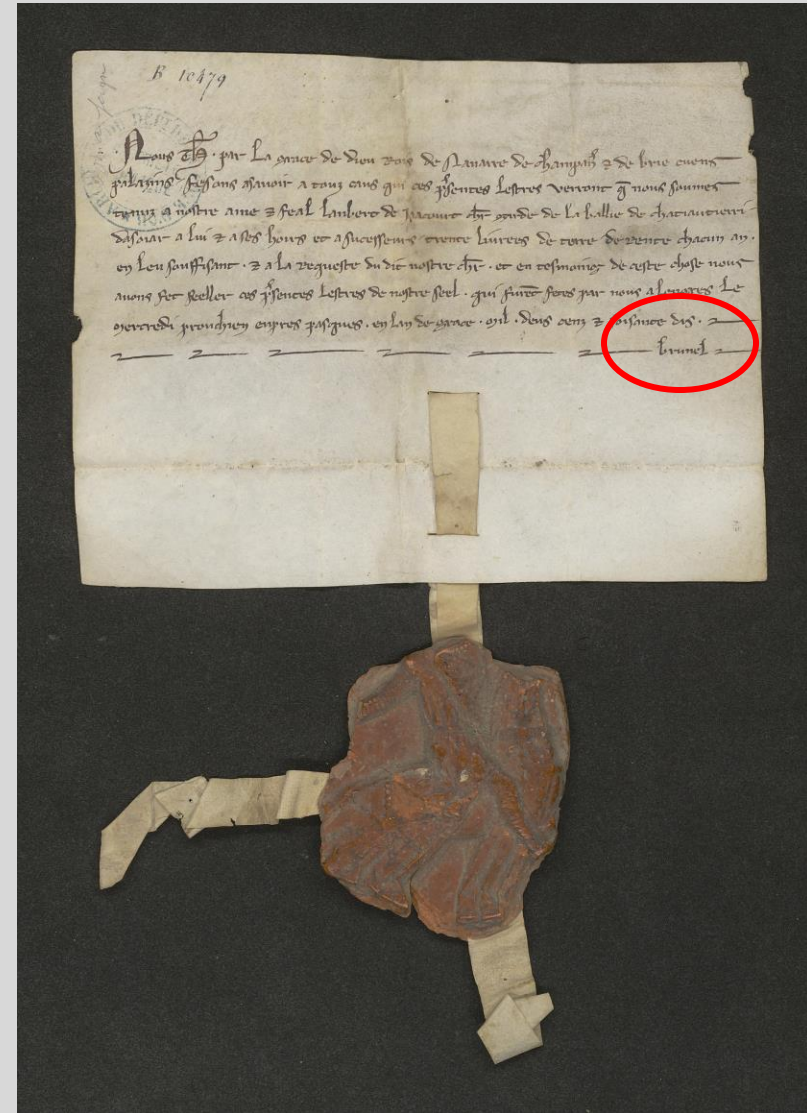 B 10479
Nous Th̅ · par la grace de dieu rois de Nauarre de Champaḡ ⁊ de brie cuens
palazins fesons asauoir a touz caus qui ces p̾sentes lestres verront q̅ nous soumes
tenuz a nostre ame ⁊ feal lanbert de chr̅ garde de la ballie de chatiautierri
dasoiar a lui ⁊ a ses hoirs et a sucesseurs trente liurees de terre de rente chacun an ·
en leu souffisant · ⁊ a la requeste du dit nostre chr̅ · et en tesmoing de ceste chose nous
auons fet seeller ces p̾sentes lestres de nostre seel · qui furēt fetes par nous a le
mercredi prouchien enpres pasques · en lan de grace · mil · deus cenz ⁊ soisante dis ·
brunel